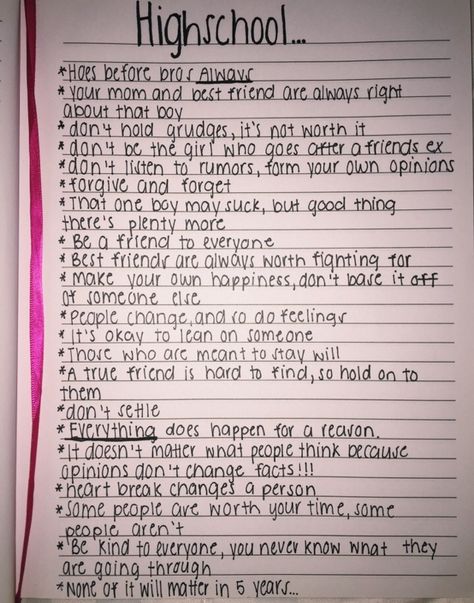 Highschool...
*Hoes before bros Always
*your mom and best friend are always right
about that boy
*don't hold grudges, it's not worth it
*don't be the girl who goes after a friends ex
*don't listen to rumors, form your own opinions
*forgive and forget
*That one boy may suck, but good thing
there's plenty more
*Be a friend to everyone
*Best friends are always worth fighting for
*make your own happiness, don't base it off
of someone else
*People change, and so do feelings
*It's okay to lean on someone
*Those who are meant to stay will
*A true friend is hard to find, so hold on to
them
*don't settle
*Everything does happen for a reason.
*It doesn't matter what people think because
opinions don't change facts!!!
*heart break changes a person
*Some people are worth your time, some
people aren't
*Be kind to everyone, you never know what they
are going through
*None of it will matter in 5 years...